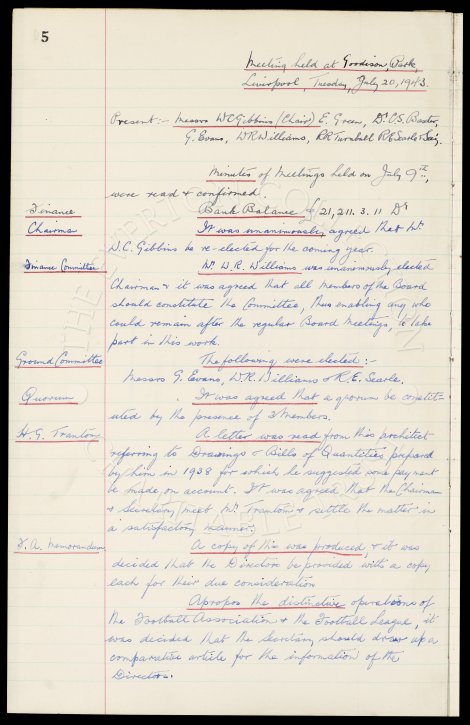 5
Meeting held at Goodison Park,
Liverpool, Tuesday, July 20, 1943.
Present:- Messrs W.C. Gibbins (Chair) E. Green, Dr C.S. Baxter,
G. Evans, W.R. Williams, R.R. Turnbull R.E. Searle & Sec'y.
Minutes of Meetings held on July 9th,
were read & confirmed.
Finance Bank Balance £21,211.3.11 Dr
Chairman It was unanimously agreed that Mr
W.C. Gibbins be re-elected for the coming year.
Finance Committee Mr W.R. Williams was unanimously elected
Chairman & it was agreed that all members of the Board
should constitute the Committee, thus enabling any who
could remain after the regular Board Meetings, to take
part in this work.
Ground Committee The following were elected:-
Messrs G. Evans, W.R. Williams & R.E. Searle.
Quorum It was agreed that a quorum be constit-
uted by the presence of 3 Members.
H.G. Tranton A letter was read from this architect
referring to Drawings & Bills of Quantities prepared
by him in 1938 for which he suggested some payment
be made on account. It was agreed that the Chairman
& Secretary meet Mr Tranton & settle the matter in
a satisfactory manner.
F.A. Memorandum A copy of this was produced, & it was
decided that the Directors be provided with a copy
each for their due consideration
Apropos the distinctive operations of
the Football Association & the Football League, it
was decided that the Secretary should draw up a
comparative article for the information of the
Directors.